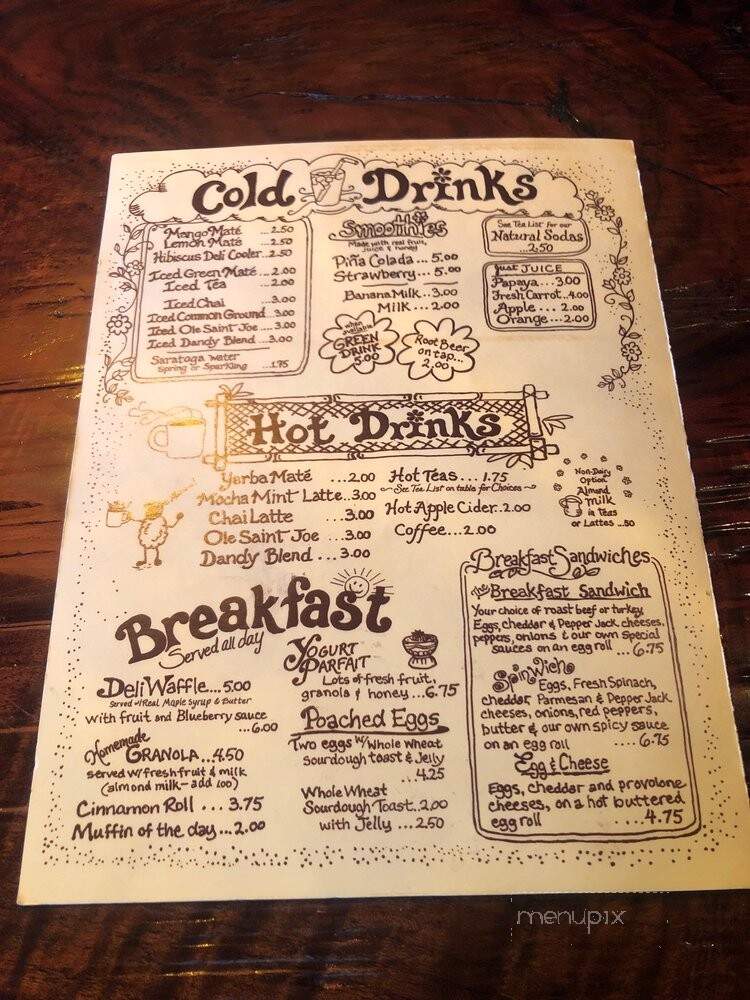 Cold Drinks
Mango Maté ...2.50
Lemon Maté ...2.50
Hibiscus Deli Cooler..2.50
Iced Green Maté...2.00
Iced Tea ...2.00
Iced Chai ...3.00
Iced Common Ground..3.00
Iced Ole Saint Joe...3.00
Iced Dandy Blend...3.00
Saratoga water
Spring or Sparkling ...1.75
Smoothies
Made with real fruit,
juice & honey
Piña Colada...5.00
Strawberry...5.00
Banana Milk..3.00
Milk...2.00
when
available
GREEN
DRINK
5.00
Root Beer
on tap...
2.00
See Tea List for our
Natural Sodas
...2.50
Just JUICE
Papaya...3.00
Fresh Carrot..4.00
Apple...2.00
Orange...2.00
Hot Drinks
Yerba Maté ...2.00
Mocha Mint Latte..3.00
Chai Latte ...3.00
Ole Saint Joe ...3.00
Dandy Blend...3.00
Hot Teas...1.75
See Tea List on table for Choices
Hot Apple Cider..2.00
Coffee...2.00
Non-Dairy
Option
Almond
milk
in Teas
or Lattes ..50
Breakfast
Served all day
Deli Waffle...5.00
Served w/Real Maple Syrup & Butter
with fruit and Blueberry sauce
...6.00
Homemade
GRANOLA...4.50
served w/fresh fruit & milk
(almond milk-add 1.00)
Cinnamon Roll ...3.75
Muffin of the day...2.00
YOGURT
PARFAIT
Lots of fresh fruit,
granola & honey...6.75
Poached Eggs
Two eggs w/Whole Wheat
Sourdough toast & Jelly
...4.25
Whole Wheat
Sourdough Toast..2.00
with Jelly ...2.50
Breakfast Sandwiches
The Breakfast Sandwich
Your choice of roast beef or turkey,
Eggs, cheddar & Pepper Jack cheeses,
peppers, onions & our own special
sauces on an egg roll ...6.75
Spinwich
Eggs, Fresh Spinach,
cheddar, Parmesan & Pepper Jack
cheeses, onions, red peppers,
butter & our own spicy sauce
on an egg roll ....6.75
Egg & Cheese
Eggs, cheddar and provolone
cheeses, on a hot buttered
egg roll ....4.75
menupix